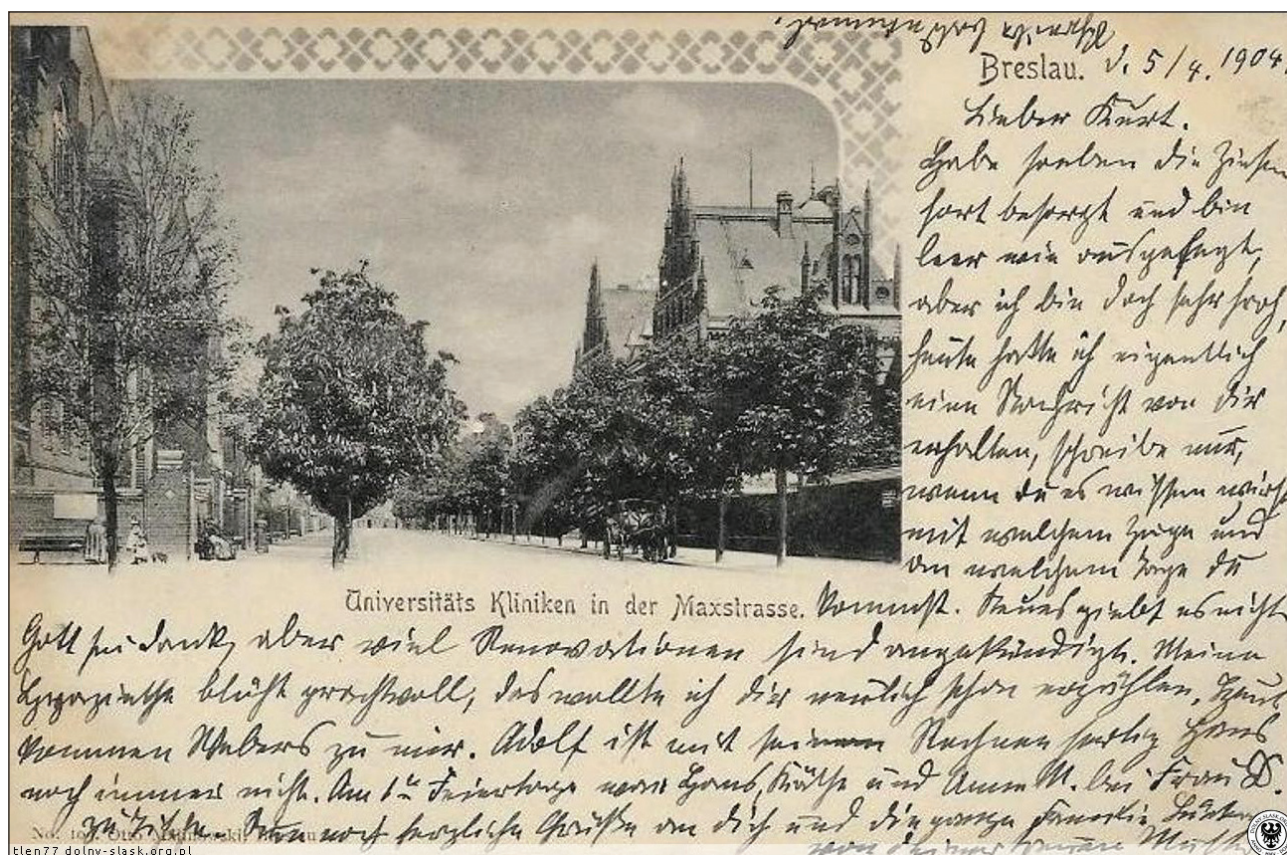 Breslau. d. 5/4. 1904
Lieber Kurt.
Habe soeben die Zinsen
fort besorgt und bin
leer wie ausgefegt,
aber ich bin doch sehr froh,
heute hatte ich eigentlich
eine Nachricht von Dir
erhalten, schreibe nur,
wenn du es wissen wirst
mit welchem Zuge und
an welchem Tage du
Universitäts Kliniken in der Maxstrasse.
kommst. Neues giebt es nicht
Gott sei dank, aber viel Renovationen sind angekündigt. Meine
Hyazinthe blüht prachtvoll, das wollte ich dir neulich schon erzählen.
kommen Webers zu mir. Adolf ist mit seinem Rechnen fertig Hans
noch immer nicht. Am 1ten Feiertage war Hans, Käthe und Anna M. bei Frau D.
Nun noch herzliche Grüße an dich und die ganze Familie
von deiner treuen Mutter
No. Otto
tlen77 dolny-slask.org.pl